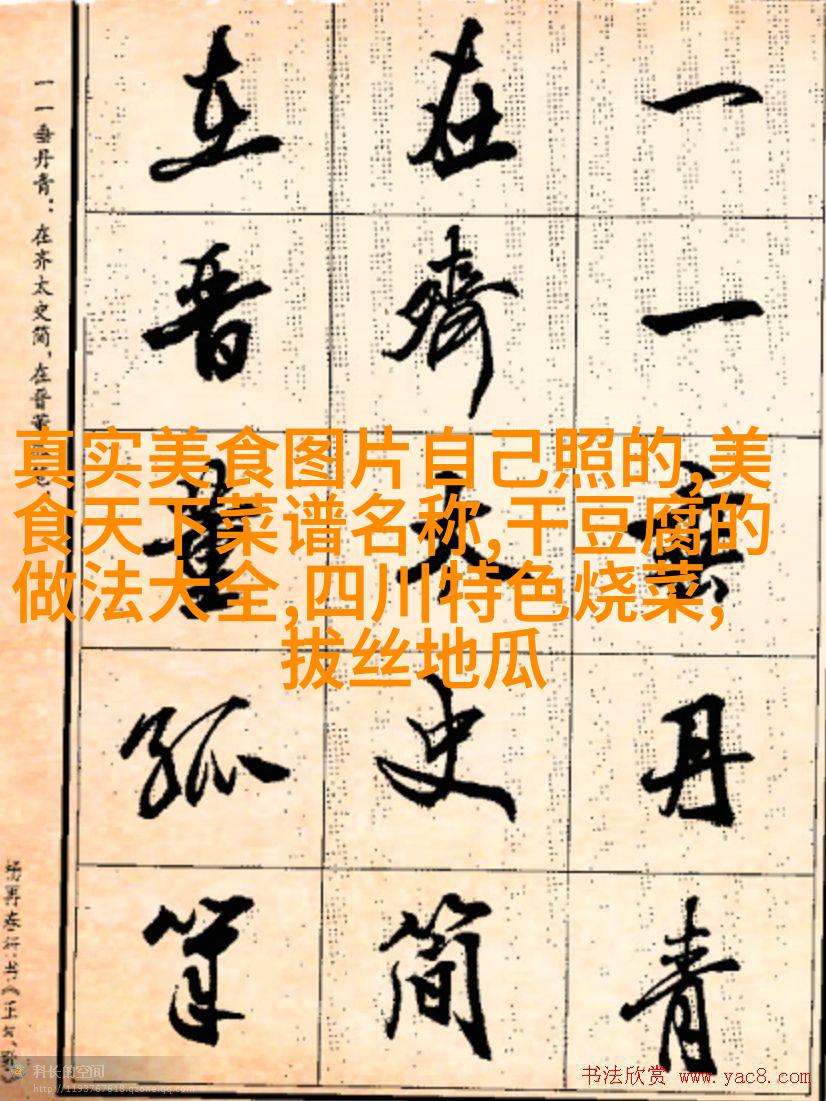 一一垂丹青
在齊太史简
在晋董狐筆
一一垂丹青：在齐太史简，在晋董
杨再春行书《正气歌》
真实美食图片自己照的,美
食天下菜谱名称,干豆腐的
做法大全,四川特色烧菜,
拔丝地瓜
科长的空间
http://1193767618.qzone.qq.com
书法欣赏 www.yac8.com